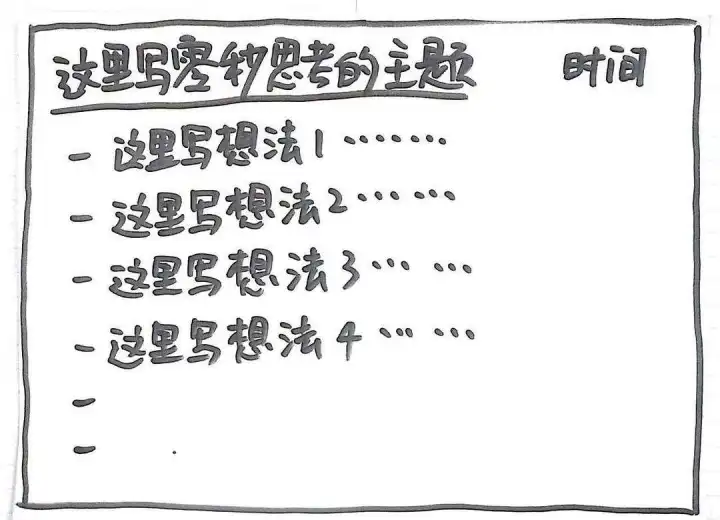 这里写零秒思考的主题 时间
- 这里写想法1 ⋯⋯⋯
- 这里写想法2⋯⋯
- 这里写想法3⋯ ⋯
- 这里写想法4⋯ ⋯
-
-